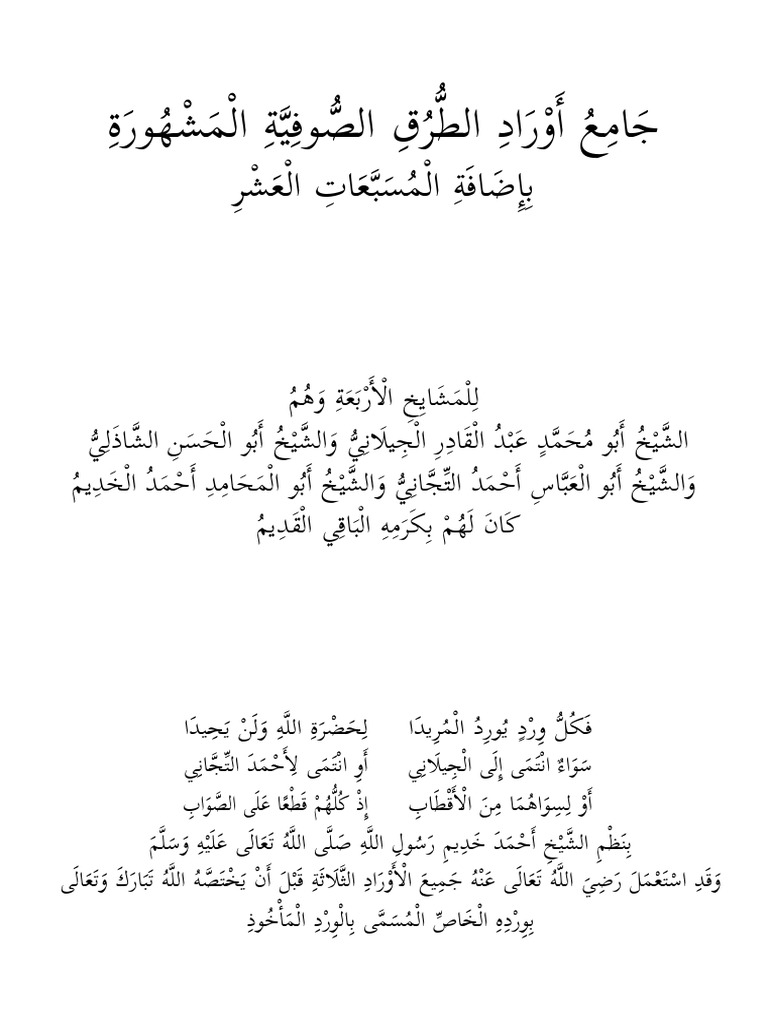 جَامِعُ أَوْرَادِ الطُّرُقِ الصُّوفِيَّةِ الْمَشْهُورَةِ
بِإِضَافَةِ الْمُسَبَّعَاتِ الْعَشْرِ
لِلْمَشَايِخِ الْأَرْبَعَةِ وَهُمُ
الشَّيْخُ أَبُو مُحَمَّدٍ عَبْدُ الْقَادِرِ الْجِيلَانِيُّ وَالشَّيْخُ أَبُو الْحَسَنِ الشَّاذَلِيُّ
وَالشَّيْخُ أَبُو الْعَبَّاسِ أَحْمَدُ التِّجَّانِيُّ وَالشَّيْخُ أَبُو الْمَحَامِدِ أَحْمَدُ الْخَدِيمُ
كَانَ لَهُمْ بِكَرَمِهِ الْبَاقِي الْقَدِيمُ
فَكُلُّ وِرْدٍ يُورِدُ الْمُرِيدَا لِحَضْرَةِ اللَّهِ وَلَنْ يَحِيدَا
سَوَاءٌ انْتَمَى إِلَى الْجِيلَانِي أَوِ انْتَمَى لِأَحْمَدَ التِّجَّانِي
أَوْ لِسِوَاهُمَا مِنَ الْأَقْطَابِ إِذْ كُلُّهُمْ قَطْعًا عَلَى الصَّوَابِ
بِنَظْمِ الشَّيْخِ أَحْمَدَ خَدِيمِ رَسُولِ اللَّهِ صَلَّى اللَّهُ تَعَالَى عَلَيْهِ وَسَلَّمَ
وَقَدِ اسْتَعْمَلَ رَضِيَ اللَّهُ تَعَالَى عَنْهُ جَمِيعَ الْأَوْرَادِ الثَّلَاثَةِ قَبْلَ أَنْ يَخْتَصَّهُ اللَّهُ تَبَارَكَ وَتَعَالَى
بِوِرْدِهِ الْخَاصِّ الْمُسَمَّى بِالْوِرْدِ الْمَأْخُوذِ